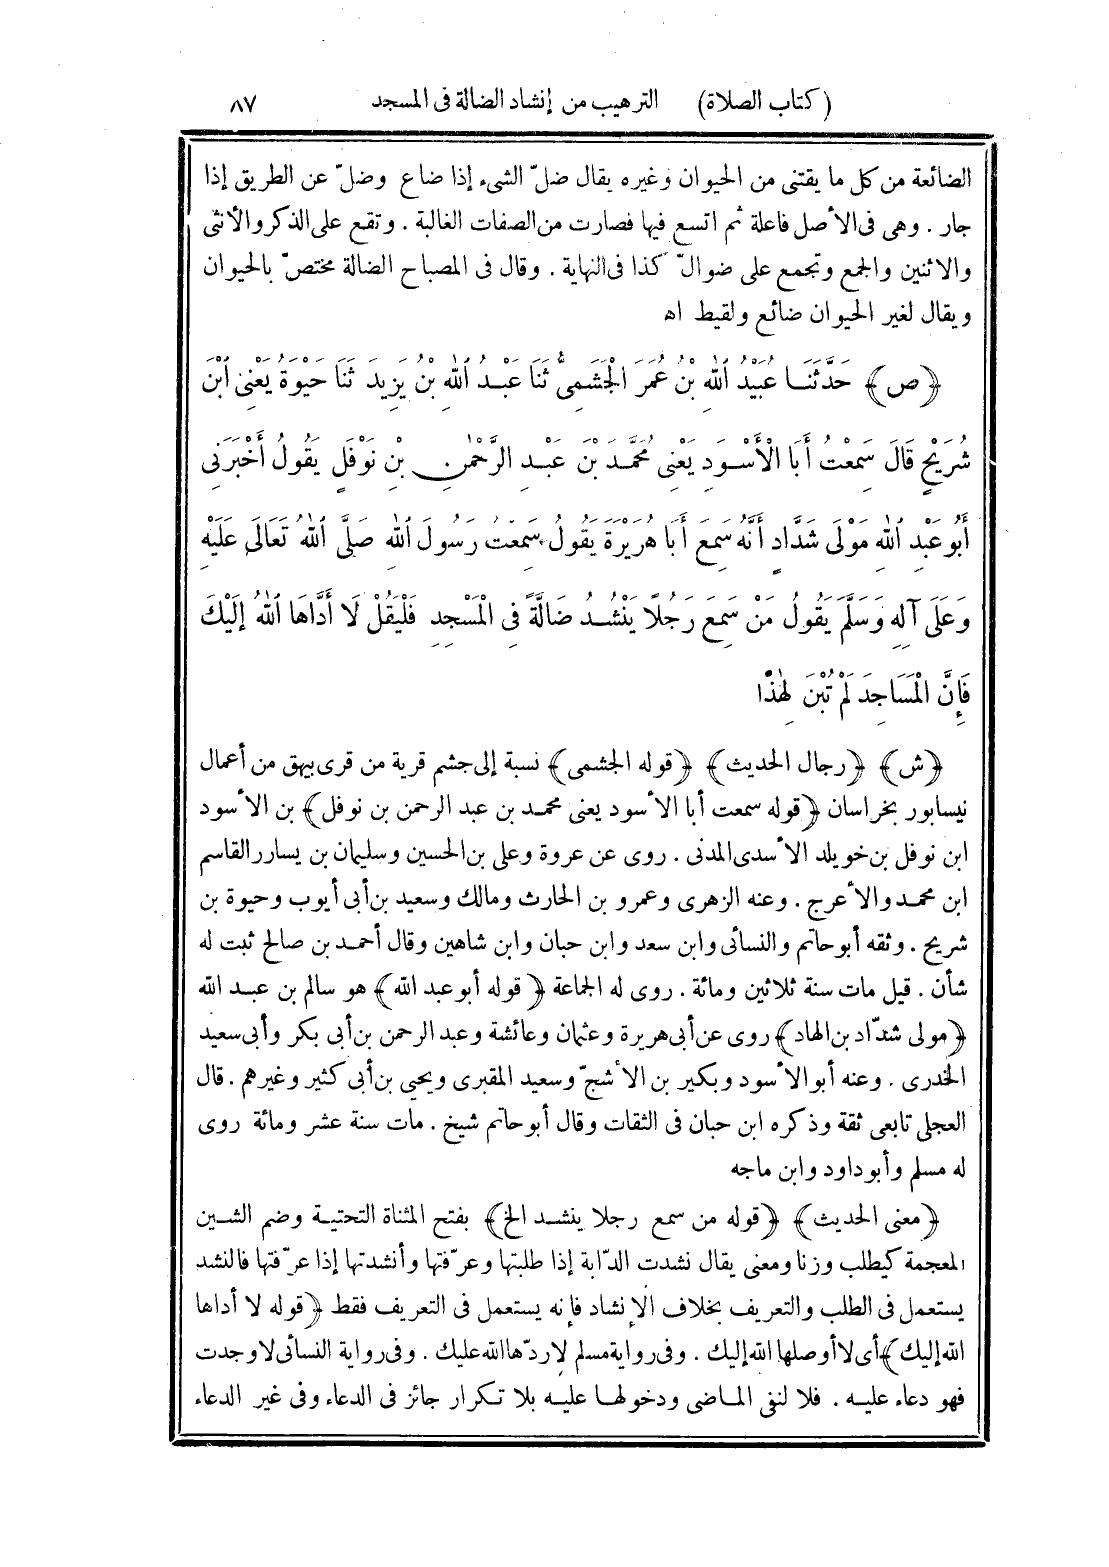 (كتاب الصلاة) الترهيب من إنشاد الضالة فى المسجد ٨٧
الضائعة من كل ما يقتنى من الحيوان وغيره يقال ضلّ الشىء إذا ضاع وضلّ عن الطريق إذا
جار . وهى فى الأصل فاعلة ثم اتسع فيها فصارت من الصفات الغالبة . وتقع على الذكر والأنثى
والاثنين والجمع وتجمع على ضوالّ كذا فى النهاية . وقال فى المصباح الضالة مختصّ بالحيوان
ويقال لغير الحيوان ضائع ولقيط اه
﴿ص﴾ حَدَّثَنَا عُبَيْدُ اللهِ بْنُ عُمَرَ الْجُشَمِىُّ ثَنَا عَبْدُ اللهِ بْنُ يَزِيدَ ثَنَا حَيْوَةُ يَعْنِى ابْنَ
شُرَيْحٍ قَالَ سَمِعْتُ أَبَا الْأَسْوَدِ يَعْنِى مُحَمَّدَ بْنَ عَبْدِ الرَّحْمٰنِ بْنِ نَوْفَلٍ يَقُولُ أَخْبَرَنِى
أَبُو عَبْدِ اللهِ مَوْلَى شَدَّادٍ أَنَّهُ سَمِعَ أَبَا هُرَيْرَةَ يَقُولُ سَمِعْتُ رَسُولَ اللهِ صَلَّى اللهُ تَعَالَى عَلَيْهِ
وَعَلَى آلِهِ وَسَلَّمَ يَقُولُ مَنْ سَمِعَ رَجُلًا يَنْشُدُ ضَالَّةً فِى الْمَسْجِدِ فَلْيَقُلْ لَا أَدَّاهَا اللهُ إِلَيْكَ
فَإِنَّ الْمَسَاجِدَ لَمْ تُبْنَ لِهٰذَا
﴿ش﴾ ﴿رجال الحديث﴾ ﴿قوله الجشمى﴾ نسبة إلى جشم قرية من قرى بيهق من أعمال
نيسابور بخراسان ﴿قوله سمعت أبا الأسود يعنى محمد بن عبد الرحمن بن نوفل﴾ بن الأسود
ابن نوفل بن خويلد الأسدى المدنى . روى عن عروة وعلى بن الحسين وسليمان بن يسار والقاسم
ابن محمد والأعرج . وعنه الزهرى وعمرو بن الحارث ومالك وسعيد بن أبى أيوب وحيوة بن
شريح . وثقه أبو حاتم والنسائى وابن سعد وابن حبان وابن شاهين وقال أحمد بن صالح ثبت له
شأن . قيل مات سنة ثلاثين ومائة . روى له الجماعة ﴿قوله أبو عبد الله﴾ هو سالم بن عبد الله
﴿مولى شدّاد بن الهاد﴾ روى عن أبى هريرة وعثمان وعائشة وعبد الرحمن بن أبى بكر وأبى سعيد
الخدرى . وعنه أبو الأسود وبكير بن الأشجّ وسعيد المقبرى ويحيى بن أبى كثير وغيرهم . قال
العجلى تابعى ثقة وذكره ابن حبان فى الثقات وقال أبو حاتم شيخ . مات سنة عشر ومائة روى
له مسلم وأبو داود وابن ماجه
﴿معنى الحديث﴾ ﴿قوله من سمع رجلا ينشد الخ﴾ بفتح المثناة التحتية وضم الشين
المعجمة كيطلب وزنا ومعنى يقال نشدت الدّابة إذا طلبتها وعرّفتها وأنشدتها إذا عرّفتها فالنشد
يستعمل فى الطلب والتعريف بخلاف الإنشاد فإنه يستعمل فى التعريف فقط ﴿قوله لا أداها
الله إليك﴾ أى لا أوصلها الله إليك . وفى رواية مسلم لا ردّها الله عليك . وفى رواية النسائى لا وجدت
فهو دعاء عليه . فلا لنفى الماضى ودخولها عليه بلا تكرار جائز فى الدعاء وفى غير الدعاء